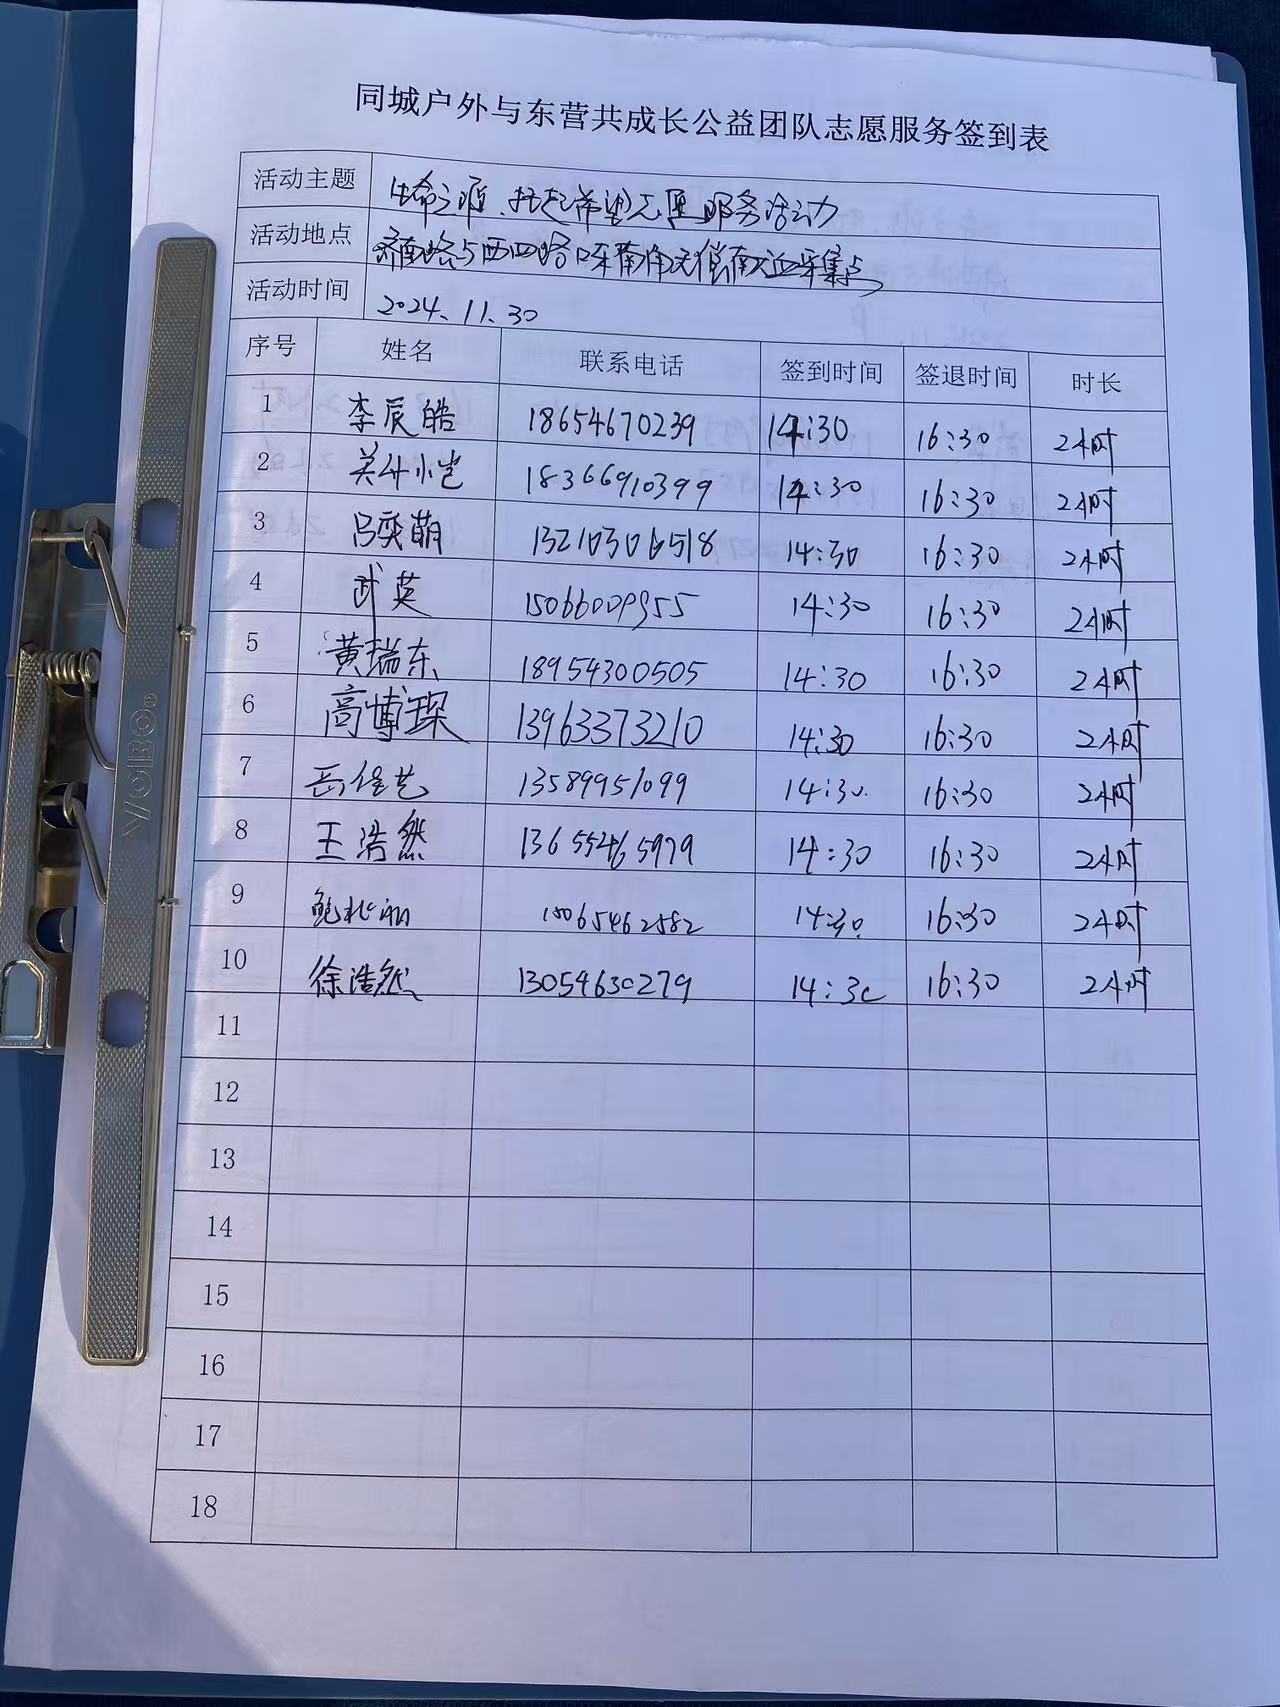 同城户外与东营共成长公益团队志愿服务签到表
活动主题 生命之源、托起希望志愿服务活动
活动地点 济南路与西四路口东南角无偿献血采集点
活动时间 2024.11.30
序号 姓名 联系电话 签到时间 签退时间 时长
1 李辰皓 18654670239 14:30 16:30 2小时
2 18366910399 14:30 16:30 2小时
3 吕奕萌 13210306518 14:30 16:30 2小时
4 武英 14:30 16:30 2小时
5 黄瑞东 18954300505 14:30 16:30 2小时
6 高博琛 13963373210 14:30 16:30 2小时
7 13589951099 14:30 16:30 2小时
8 王浩然 13655465979 14:30 16:30 2小时
9 15065462582 14:30 16:30 2小时
10 徐浩然 13054630279 14:30 16:30 2小时
11
12
13
14
15
16
17
18